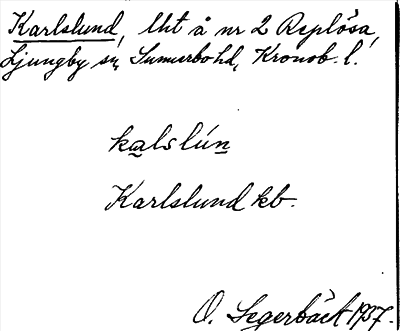 Karlslund, lht å nr 2 Replösa,
Ljungby sn, Sunnerbo hd, Kronob. l.
kalslún
Karlslund kb.
O. Segerbäck 1937.